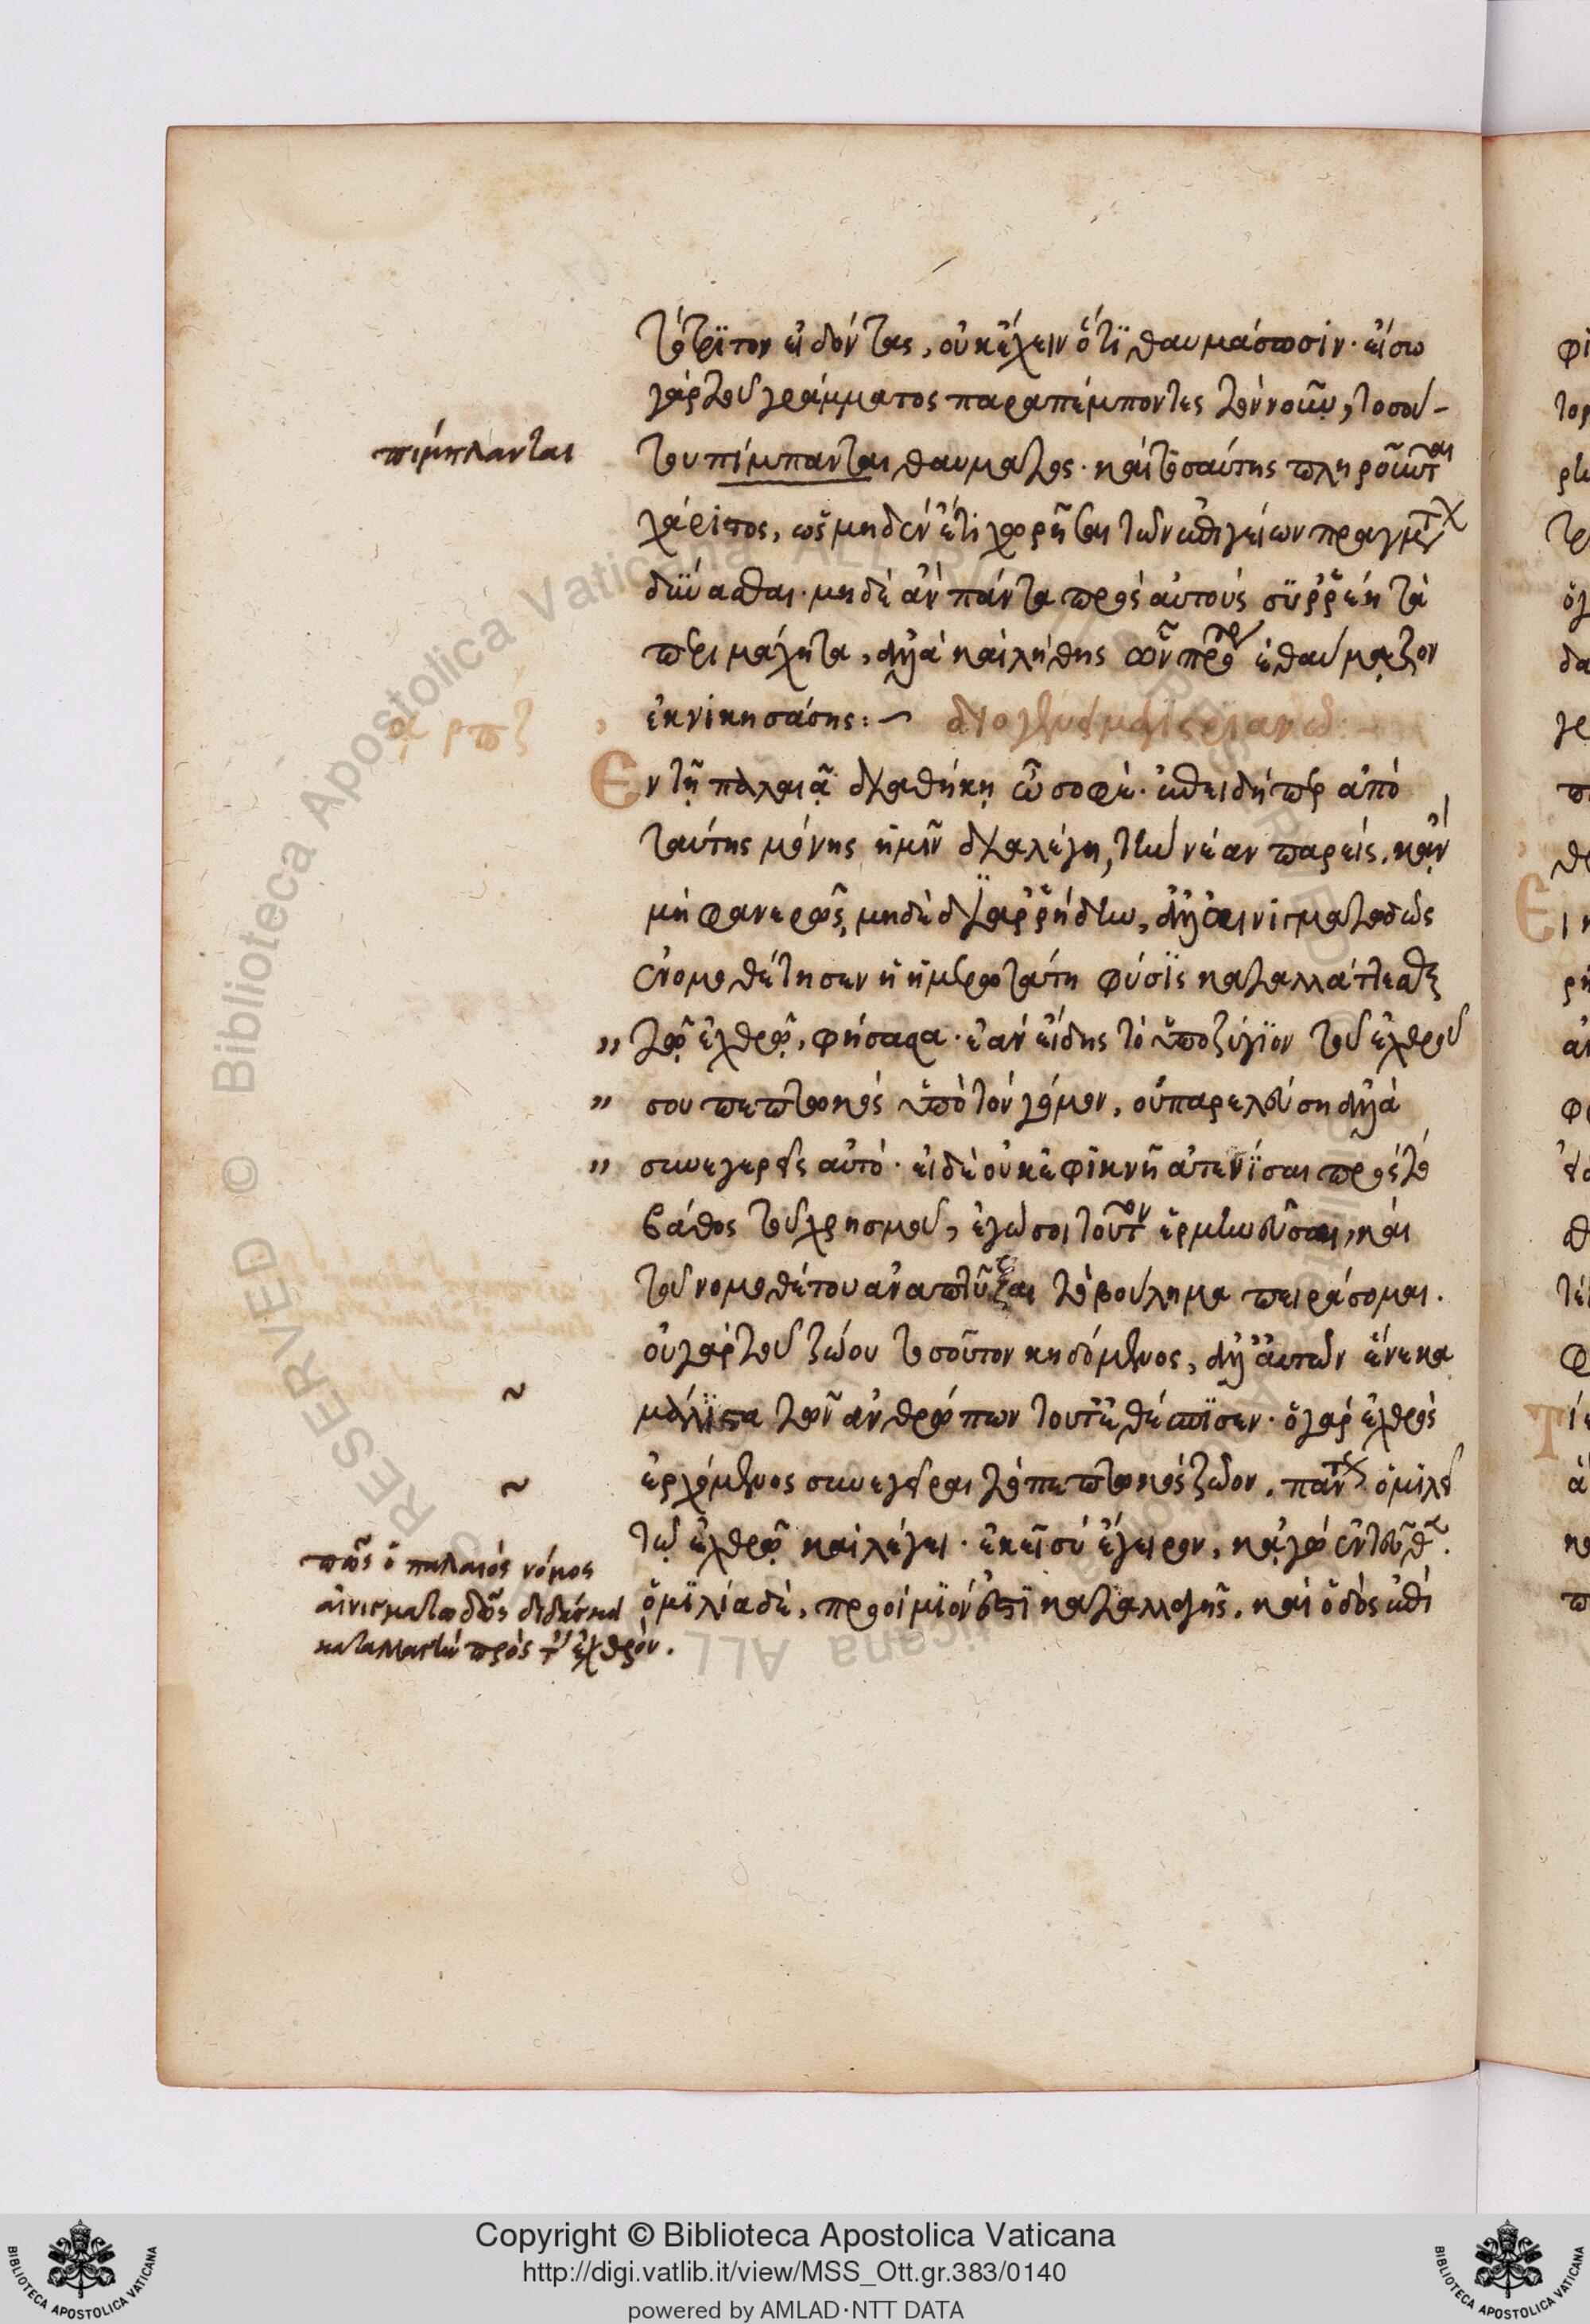 τὸ τρίτον εἰδόντας, οὐκ ἔχειν ὅ τι θαυμάσωσιν· εἴσω
γὰρ τοῦ γράμματος παραπέμποντες τὸν νοῦν, τοσού-
του πίμπανται θαύματος· καὶ τοσαύτης πληροῦνται
χάριτος, ὡς μηδὲν ἔτι χωρῆσαι τῶν ἐπιγείων πραγμάτων
δύνασθαι· μηδὲ ἂν πάντα πρὸς αὐτοὺς συῤῥέῃ τὰ
περιμάχητα, ἀλλὰ καὶ λήθης ὧν πρότερον ἐθαύμαζον
ἐκνικησάσης:
α ρπζ
Ἐν τῇ παλαιᾷ διαθήκῃ ὦ σοφέ· ἐπειδήπερ ἀπὸ
ταύτης μόνης ἡμῖν διαλέγῃ, τὴν νέαν παρείς, κἂν
μὴ φανερῶς, μηδὲ διαῤῥήδην, ἀλλ' αἰνιγματωδῶς
ἐνομοθέτησεν ἡ ἡμερωτάτη φύσις καταλλάττεσθαι
" τῷ ἐχθρῷ, φήσασα· ἐὰν εἴδῃς τὸ ὑποζύγιον τοῦ ἐχθροῦ
" σου πεπτωκὸς ὑπὸ τὸν γόμον, οὐ παρελεύσῃ ἀλλὰ
" συνεγερεῖς αὐτό· εἰ δὲ οὐκ ἐφικνῇ ἀτενίσαι πρὸς τὸ
βάθος τοῦ χρησμοῦ, ἐγώ σοι τοῦτον ἑρμηνεῦσαι, καὶ
τοῦ νομοθέτου ἀναπτύξαι τὸ βούλημα πειράσομαι.
οὐ γὰρ τοῦ ζώου τοσοῦτον κηδόμενος, ἀλλ' αὐτῶν ἕνεκα
μάλιστα τῶν ἀνθρώπων τοῦτ' ἐθέσπισεν· ὁ γὰρ ἐχθρὸς
ἐρχόμενος συνεγεῖραι τὸ πεπτωκὸς ζῶον, πάντως ὁμιλεῖ
τῷ ἐχθρῷ καὶ λέγει· ἐκεῖ σὺ ἔγειρον, κἀγὼ ἐντεῦθεν.
ὁμιλία δὲ, προοίμιόν ἐστι καταλλαγῆς, καὶ ὁδὸς ἐπὶ
πιμπλανται
πῶς ὁ παλαιὸς νόμος
αἰνιγματωδῶς διδάσκει
καταλλαγὴν πρὸς τὸν ἐχθρόν.
Copyright © Biblioteca Apostolica Vaticana
http://digi.vatlib.it/view/MSS_Ott.gr.383/0140
powered by AMLAD·NTT DATA
BIBLIOTECA APOSTOLICA VATICANA
BIBLIOTECA APOSTOLICA VATICANA